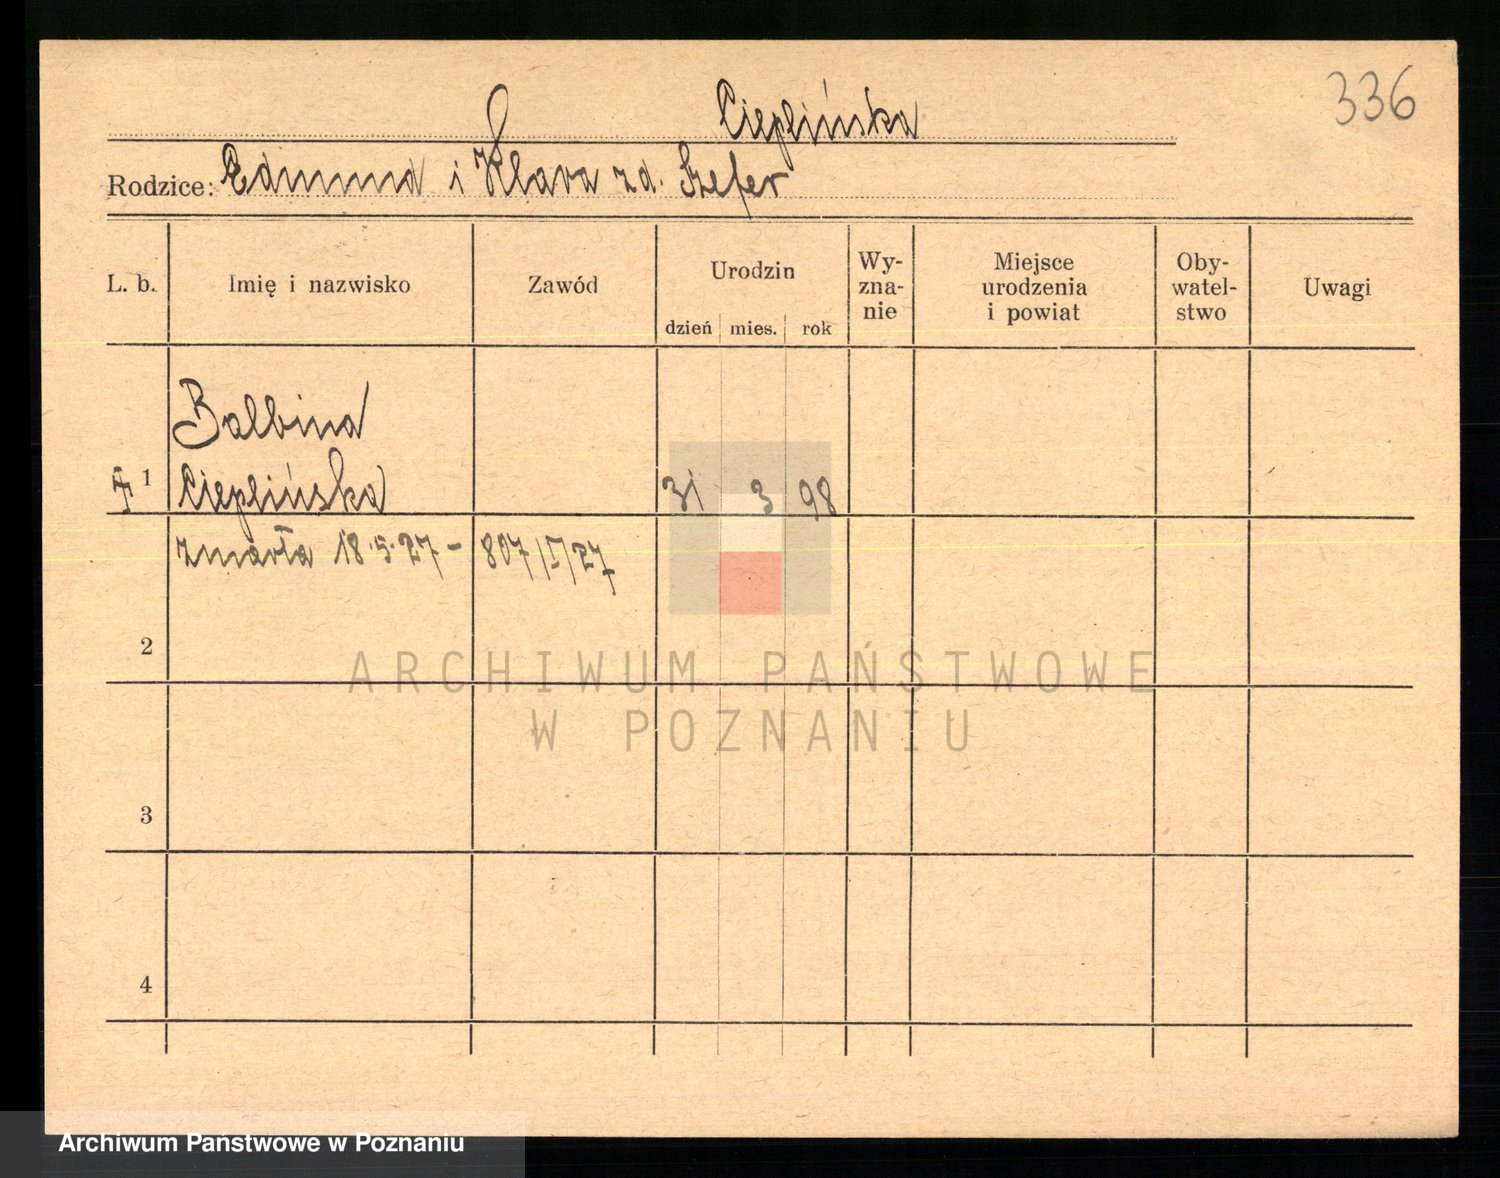 336
Cieplińska
Rodzice: Edmund i Klara zd. Szefer
L. b.
Imię i nazwisko
Zawód
Urodzin
dzień mies. rok
Wy-
zna-
nie
Miejsce
urodzenia
i powiat
Oby-
watel-
stwo
Uwagi
Balbina
1 Cieplińska 31 3 98
zmarła 18.5.27 - 807/I/27
2
3
4
ARCHIWUM PAŃSTWOWE
W POZNANIU
Archiwum Państwowe w Poznaniu